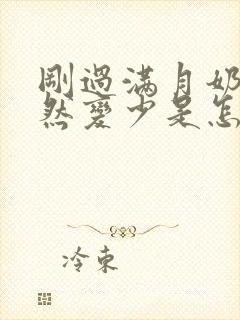 剛過滿月奶
然變少是怎
冷東